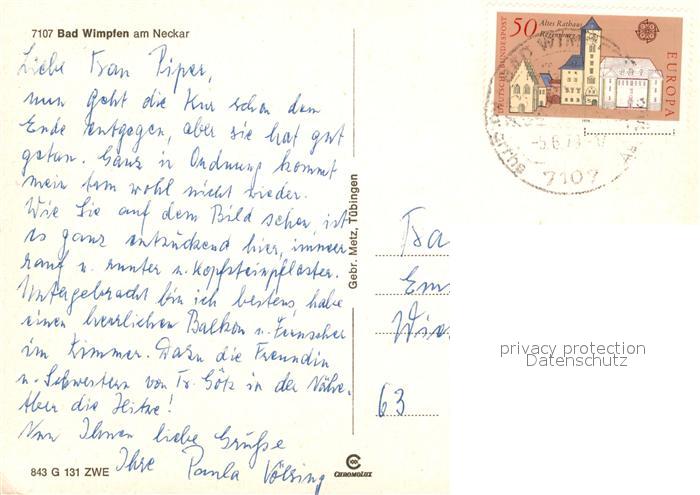 7107 Bad Wimpfen am Neckar
Liebe Frau Piper,
nun geht die Kur schon dem
Ende entgegen, aber sie hat gut
getan. Ganz in Ordnung kommt
mein wohl nicht wieder.
Wie Sie auf dem Bild sehen, ist
es ganz entzückend hier, immer
rauf u. runter u. Kopfsteinpflaster.
Untergebracht bin ich bestens, habe
einen herrlichen Balkon u. Fernseher
im Zimmer. Dazu die Freundin
u. Schwestern von Fr. Götz in der Nähe.
Aber die Hitze!
Nun Ihnen liebe Grüße
Ihre Paula
843 G 131 ZWE
Gebr. Metz, Tübingen
CHROMOLUX
50
Altes Rathaus
Regensburg
DEUTSCHE BUNDESPOST
EUROPA
BAD WIM
7107
Fra
Em
Wie
63
privacy protection
Datenschutz